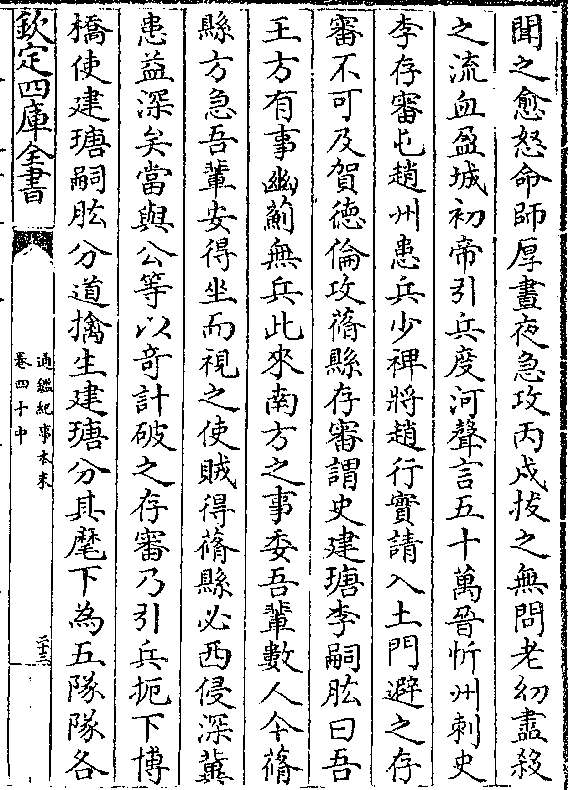 聞之愈怒命師厚晝夜急攻丙戌拔之無問老幼盡殺
之流血盈城初帝引兵度河聲言五十萬晉忻州刺史
李存審屯趙州患兵少裨將趙行實請入土門避之存
審不可及賀德倫攻蓨縣存審謂史建瑭李嗣肱曰吾
王方有事幽薊無兵此來南方之事委吾輩數人今蓨
縣方急吾輩安得坐而視之使賊得蓨縣必西侵深冀
患益深矣當與公等以奇計破之存審乃引兵扼下博
橋使建瑭嗣肱分道擒生建瑭分其麾下為五隊隊各
欽定四庫全書
通鑑紀事本末
卷四十中
二十三